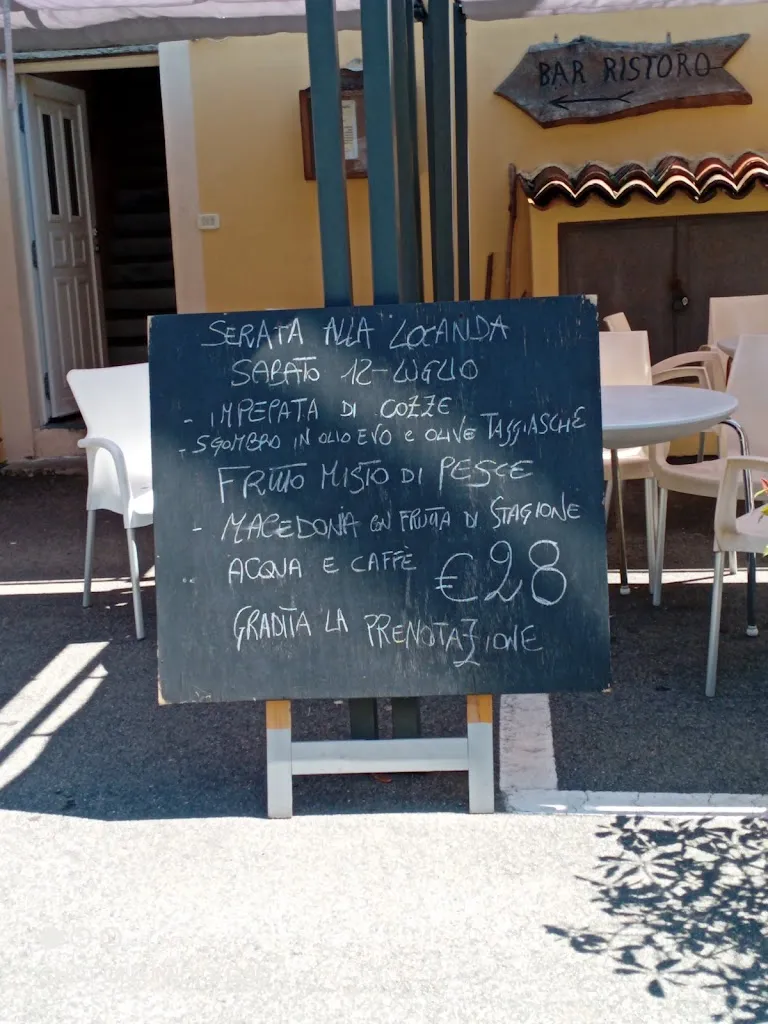 BAR RISTORO
SERATA ALLA LOCANDA
SABATO 12-LUGLIO
- IMPEPATA DI COZZE
- SGOMBRO IN OLIO EVO e OLIVE TAGGIASCHE
FRITTO MISTO DI PESCE
- MACEDONIA CON FRUTTA DI STAGIONE
ACQUA E CAFFÈ €28
GRADITA LA PRENOTAZIONE